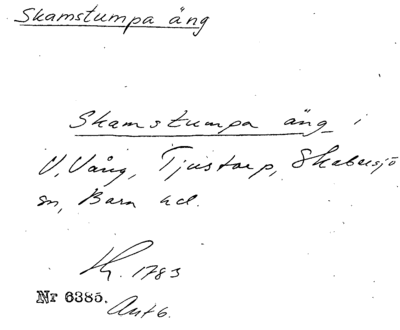 Skamstumpa äng
Skamstumpa äng i
V. Vång, Tjustorp, Skabersjö
sn, Bara hd.
Kh. 1783
Nr 6385. Ant 6.